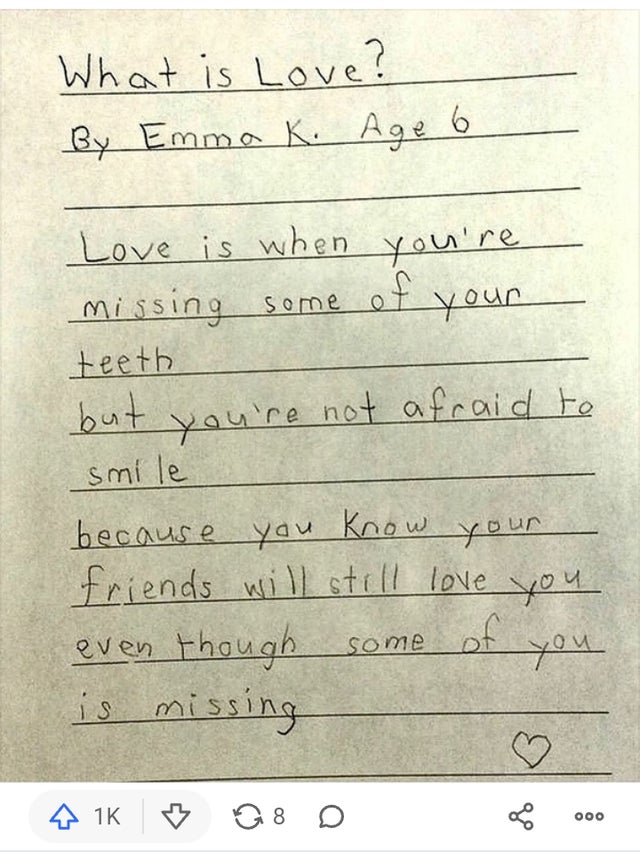 What is Love?
By Emma K. Age 6
Love is when you're
missing some of your
teeth
but you're not afraid to
smile
because you know your
friends will still love you
even though some of you
is missing
1K
8